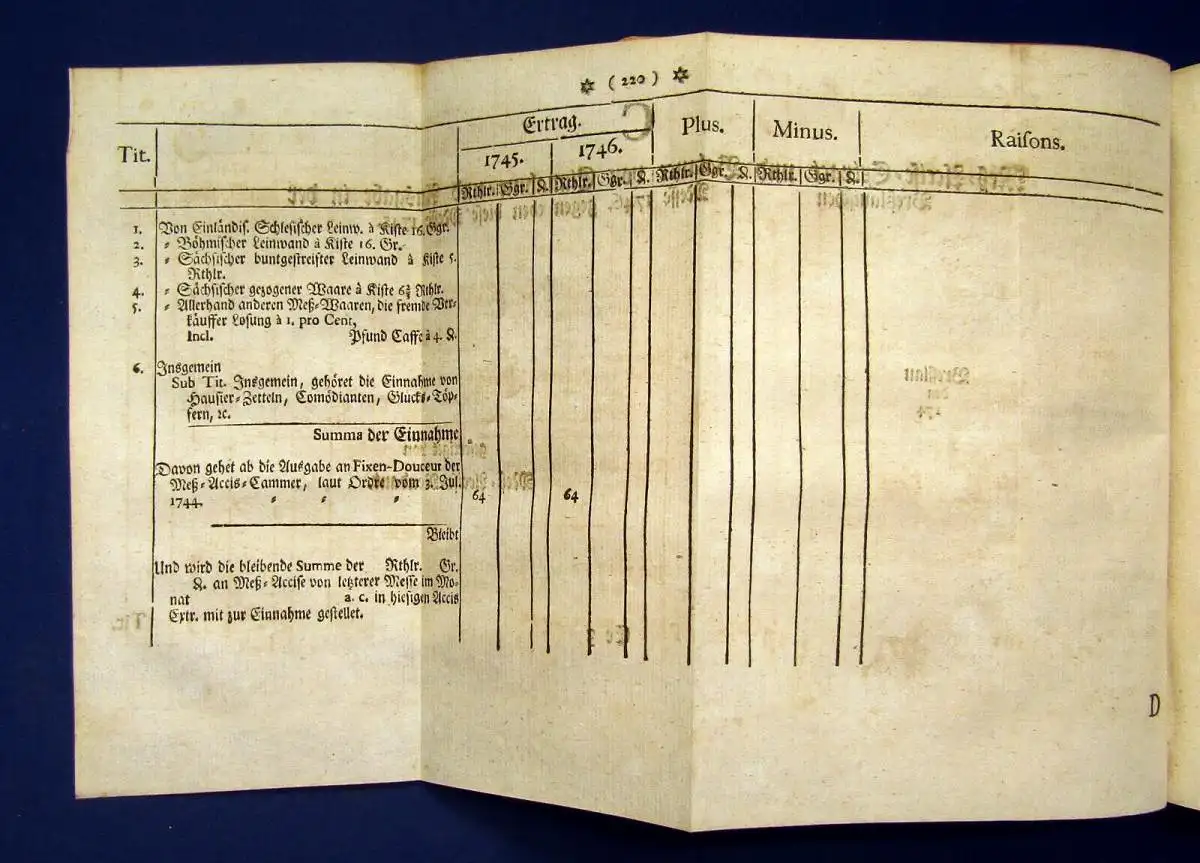 ✡ ( 220 ) ✡
Tit. Ertrag. Plus. Minus. Raisons.
1745. 1746.
Rthlr. Ggr. ₰. Rthlr. Ggr. ₰. Rthlr. Ggr. ₰. Rthlr. Ggr. ₰.
1. Von Einländis. Schlesischer Leinw. à Kiste 16. Ggr.
2. = Böhmischer Leinwand à Kiste 16. Gr.
3. = Sächsischer buntgestreifter Leinwand à Kiste 5.
Rthlr.
4. = Sächsischer gezogener Waare à Kiste 6⅔ Rthlr.
5. = Allerhand anderen Meß-Waaren, die fremde Ver-
käuffer Losung à 1. pro Cent,
Incl. Pfund Caffe à 4. ₰.
6. Insgemein
Sub Tit. Insgemein, gehöret die Einnahme von
Hausier-Zetteln, Comödianten, Glücks-Töp-
fern, ꝛc.
Summa der Einnahme
Davon gehet ab die Ausgabe an Fixen-Douceur der
Meß-Accis-Cammer, laut Ordre vom 3. Jul.
1744. = = = 64 64
Bleibt
Und wird die bleibende Summe der Rthlr. Gr.
₰. an Meß-Accise von letzterer Messe im Mo-
nat a. c. in hiesigen Accis
Extr. mit zur Einnahme gestellet.
D